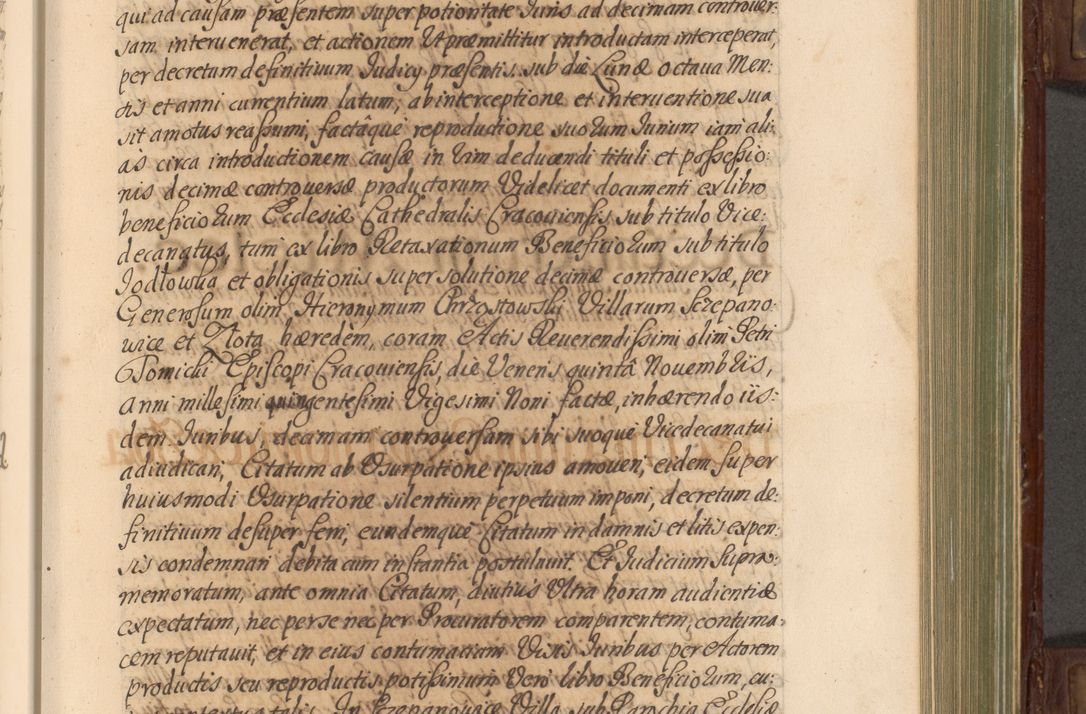 qui ad causam præsentem super potioritate Juris ad decimam controuer:
sam interuenerat, et actionem Ut præmittitur introductam interceperat,
per decretum definitiuum Judicij præsentis sub die Lunæ octaua Men:
sis et anni currentium latum, ab interceptione et interuentione sua
sit amotus reassumi, factâque reproductione suorum Jurium iam ali:
as circa introductionem causæ in Vim deducendi tituli et possessio:
nis decimæ controuersæ productorum Videlicet documenti ex libro
beneficiorum Ecclesiæ Cathedralis Cracouiensis sub titulo Vice:
decanatus, tum ex libro Retaxationum Beneficiorum sub titulo
Jodłowka et obligationis super solutione decimæ controuersæ, per
Generosum olim Hieronymum Chrząstowski Villarum Sczepano:
wice et Zlota hæredem, coram Actis Reuerendissimi olim Petri
Tomicki Episcopi Cracouiensis, die Veneris quintâ Nouembris,
Anni millesimi quingentesimi Vigesimi Noni factæ, inhærendo iis:
dem Juribus, decimam controuersam sibi suoque Vicedecanatui
adiudicari, Citatum ab Usurpatione ipsius amoueri, eidem super
huiusmodi Usurpatione silentium perpetuum imponi, decretum de:
finitiuum desuper ferri, eundemque Citatum in damnis et litis expen:
sis condemnari debita cum instantia postulauit. Et Judicium supra:
memoratum, ante omnia Citatum, diutius Ultra horam audientiæ
expectatum, nec per se nec per Procuratorem comparentem, contuma:
cem reputauit, et in eius contumaciam Visis Juribus per Actorem
productis seu reproductis potissimum Vero libro Beneficiorum, cu:
In Sczepanowice Villa sub Parochia Ecclesiæ